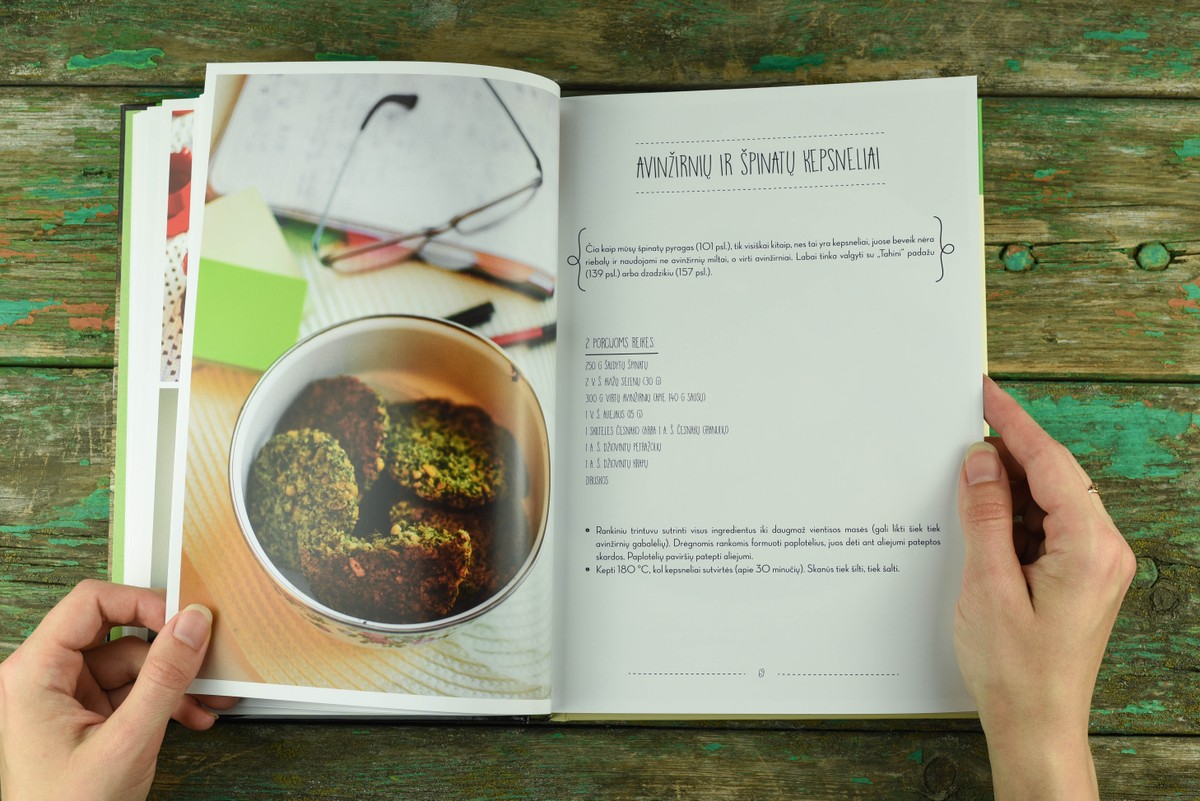 AVINŽIRNIŲ IR ŠPINATŲ KEPSNELIAI
Čia kaip mūsų špinatų pyragas (101 psl.), tik visiškai kitaip, nes tai yra kepsneliai, juose beveik nėra
riebalų ir naudojami ne avinžirnių miltai, o virti avinžirniai. Labai tinka valgyti su „Tahini“ padažu
(139 psl.) arba dzadzikiu (157 psl.).
2 PORCIJOMS REIKĖS
250 G ŠALDYTŲ ŠPINATŲ
2 V. Š. AVIŽŲ SĖLENŲ (30 G)
300 G VIRTŲ AVINŽIRNIŲ (APIE 140 G SAUSŲ)
1 V. Š. ALIEJAUS (15 G)
1 SKILTELĖS ČESNAKO (ARBA 1 A. Š. ČESNAKŲ GRANULIŲ)
1 A. Š. DŽIOVINTŲ PETRAŽOLIŲ
1 A. Š. DŽIOVINTŲ KRAPŲ
DRUSKOS
• Rankiniu trintuvu sutrinti visus ingredientus iki daugmaž vientisos masės (gali likti šiek tiek
avinžirnių gabalėlių). Drėgnomis rankomis formuoti paplotėlius, juos dėti ant aliejumi pateptos
skardos. Paplotėlių paviršių patepti aliejumi.
• Kepti 180 °C, kol kepsneliai sutvirtės (apie 30 minučių). Skanūs tiek šilti, tiek šalti.
69